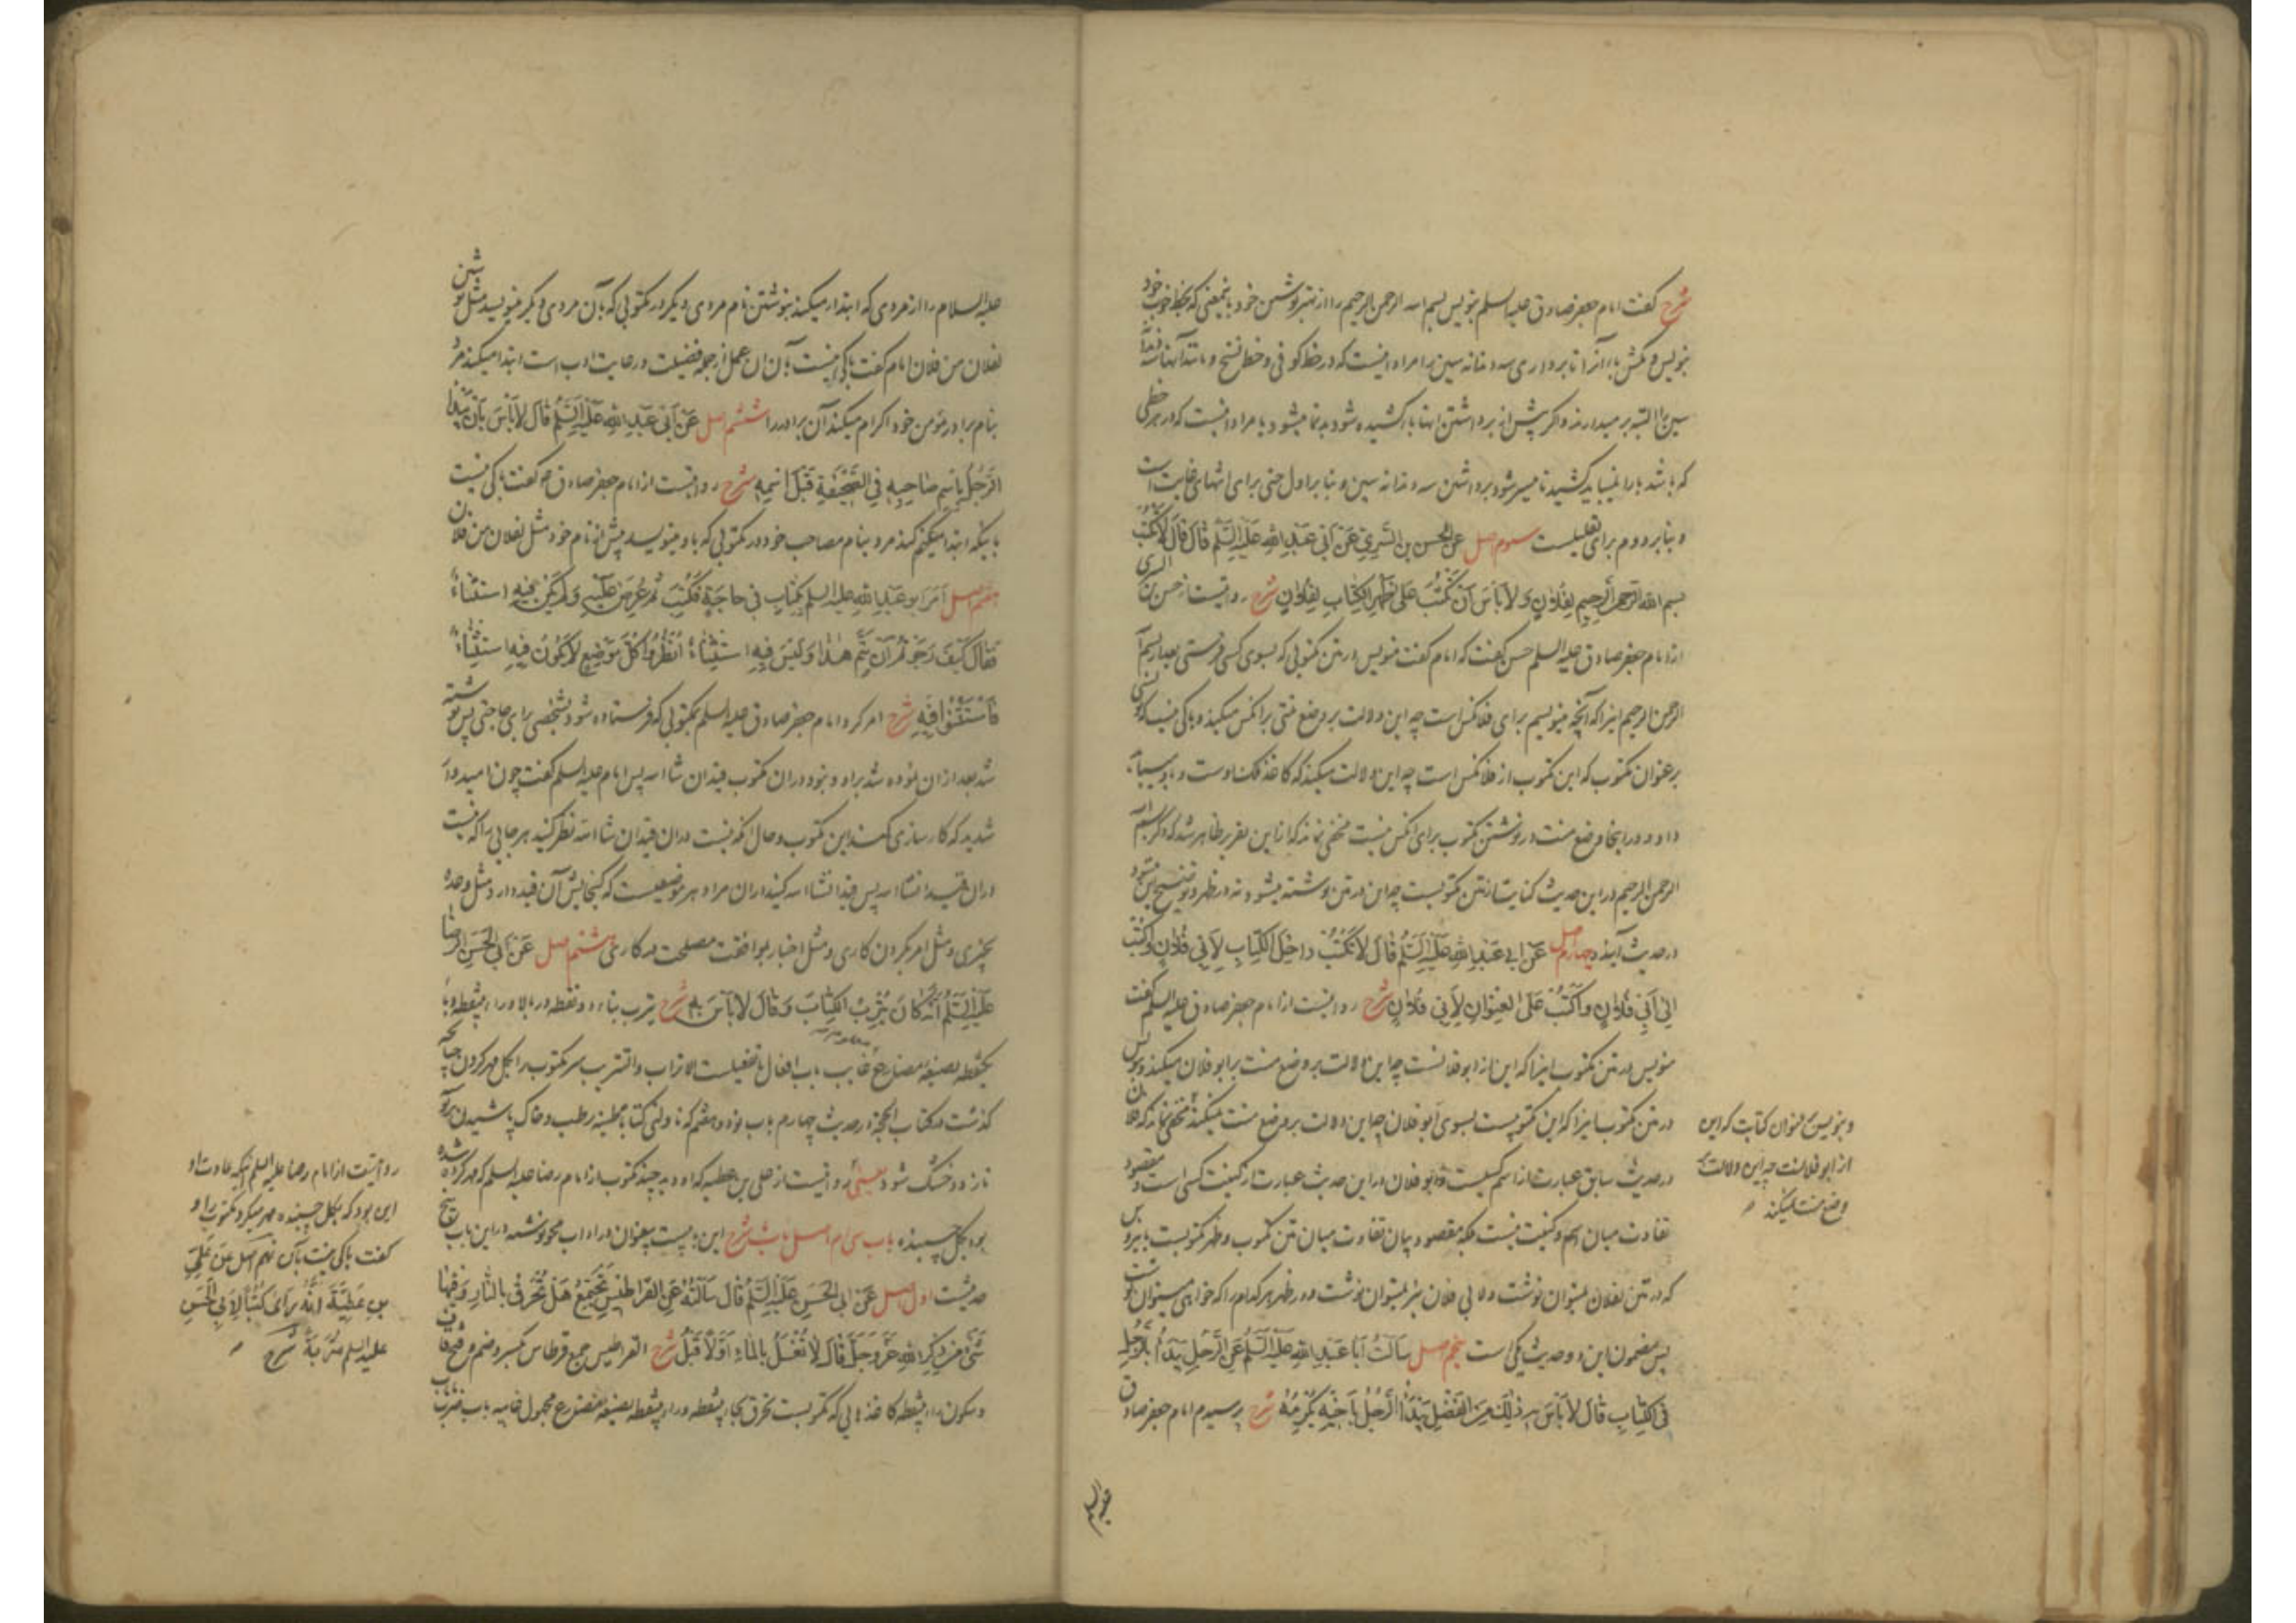 شرح گفت امام جعفر صادق علیه السلم بنویس بسم الله الرحمن الرحیم را از بهتر نوشتن خود باینمعنی که بخط خوب خود
بنویس و مکش با را تا برداری سه دندانه سین را مراد اینست که در خط کوفی و خط نسخ و مانند آنها
سین را البته بر میدارند و اگر پیش از برداشتن انها با کشیده شود بدنما میشود یا مراد اینست که در هر خطی
که باشد با را نمیباید کشید تا میسر شود برداشتن سه دندانه سین و بنا بر اول حتی برای انتهای غایت است
و بنا بر دوم برای تعلیلست سوم اصل عن الحسن بن السری عن ابی عبد الله علیه السلم قال قال لا تکتب
بسم الله الرحمن الرحیم لفلان و لا باس ان تکتب علی ظهر الکتاب لفلان شرح روایتست از حسن بن السری
از امام جعفر صادق علیه السلم حسن گفت که امام گفت منویس در متن مکتوبی که بسوی کسی فرستی بعد از بسم الله
الرحمن الرحیم اینرا که آنچه مینویسم برای فلانکس است چه این دلالت بر وضع منتی بر آنکس میکند و باکی نیست که نویسی
بر عنوان مکتوب که این مکتوب از فلانکس است چه این دلالت میکند که کاغذ ملک اوست و باو میباید
داد و در اینجا وضع منت در نوشتن مکتوب برای آنکس نیست مخفی نماند که از این تقریر ظاهر شد که ذکر بسم الله
الرحمن الرحیم در این حدیث کنایت از متن مکتوبست چه این در متن نوشته میشود نه در ظهر و توضیح این میشود
در حدیث آینده چهارم اصل عن ابی عبد الله علیه السلم قال لا تکتب داخل الکتاب لابی فلان و اکتب
الی ابی فلان و اکتب علی العنوان لابی فلان شرح روایتست از امام جعفر صادق علیه السلم گفت
منویس در متن مکتوب اینرا که این از ابو فلانست چه این دلالت بر وضع منت بر ابو فلان میکند و بنویس
در متن مکتوب اینرا که این مکتوبیست بسوی ابو فلان چه این دلالت بر وضع منت نمیکند مخفی نماند که فلان
در حدیث سابق عبارت از اسم کسیست و ابو فلان در این حدیث عبارت از کنیت کسی است و مقصود
تفاوت میان اسم و کنیت نیست بلکه مقصود بیان تفاوت میان متن مکتوب و ظهر مکتوبست بنابر این
که در متن لفلان نمیتوان نوشت و لابی فلان نیز نمیتوان نوشت و در ظهر هر کدام را که خواهی میتوان نوشت
پس مضمون این دو حدیث یکی است پنجم اصل سالت ابا عبد الله علیه السلم عن الرجل یبدا بالرجل
فی الکتاب قال لا باس به ذلک من الفضل یبدا الرجل باخیه یکرمه شرح پرسیدم امام جعفر صادق
علیه السلم
و بنویس بر عنوان کتابت که این
از ابو فلانست چه این دلالت بر
وضع منت نمیکند
علیه السلام را از مردی که ابتدا میکند بنوشتن نام مردی دیگر در مکتوبی که بآن مردی دیگر مینویسد مثل نوشتن
لفلان من فلان امام گفت باکی نیست بآن ان عمل از جمله فضیلت و رعایت ادب است ابتدا میکند مرد
بنام برادر مؤمن خود اکرام میکند آن برادر را ششم اصل عن ابی عبد الله علیه السلم قال لا باس بان یبدا
الرجل باسم صاحبه فی الصحیفة قبل اسمه شرح روایتست از امام جعفر صادق ع گفت باکی نیست
باینکه ابتدا کند مرد بنام مصاحب خود در مکتوبی که باو مینویسد پیش از نام خود مثل لفلان من فلان
هفتم اصل امر ابو عبد الله علیه السلم بکتاب فی حاجة فکتب ثم عرض علیه و لم یکن فیه استثناء
فقال کیف رجوتم ان یتم هذا و لیس فیه استثناء انظروا کل موضع لا یکون فیه استثناء
فاستثنوا فیه شرح امر کرد امام جعفر صادق علیه السلم بمکتوبی که فرستاده شود بشخصی برای حاجتی پس نوشته
شد بعد از ان نموده شد براو و نبود در ان مکتوب قید ان شا الله پس امام علیه السلم گفت چون امیدوار
شدید که کارسازی کند این مکتوب و حال آنکه نیست در ان قید ان شا الله نظر کنید هر جایی را که نیست
در ان قید انشا الله پس قید انشا الله کنید در ان مراد هر موضعیست که گنجایش آن قید دارد مثل وعده
بچیزی و مثل امر بکردن کاری و مثل اخبار بموافقت مصلحت در کاری هشتم اصل عن ابی الحسن الرضا
علیه السلم انه کان یترب الکتاب و قال لا باس به شرح یترب بتاء دو نقطه در بالا و راء بینقطه و باء
یکنقطه بصیغه مضارع غایب باب افعال یا تفعیلست الاتراب و التتریب سر مکتوب را بگل مهر کردن چنانچه
گذشت در کتاب الحجة در حدیث چهارم باب نود و هفتم که ناولنی کتابا طینه رطب و خاک پاشیدن بر نوشته
تازه و خشک شود یعنی روایتست از علی بن عطیه که او دید چند مکتوب از امام رضا علیه السلم که مهر کرده شده
بود بگل چسبنده باب سی ام اصل باب شرح این بابیست بیعنوان در آداب محو نوشته در این باب پنج
حدیثست اول اصل عن ابی الحسن علیه السلم قال سالته عن القراطیس تجتمع هل تحرق بالنار و فیها
شیء من ذکر الله عز و جل قال لا تغسل بالماء اولا قبل شرح القراطیس جمع قرطاس بکسر و ضم و فتح قاف
و سکون راء بینقطه کاغذهایی که مکتوبست تحرق بحاء بینقطه و راء بینقطه بصیغه مضارع مجهول غایبه باب ضرب یا
روایتست از امام رضا علیه السلم اینکه عادت او
این بود که بگل چسبنده مهر میکرد مکتوب را و
گفت باکی نیست بآن نهم اصل عن علی
بن عطیة انه رای کتبا لابی الحسن
علیه السلم متربة شرح